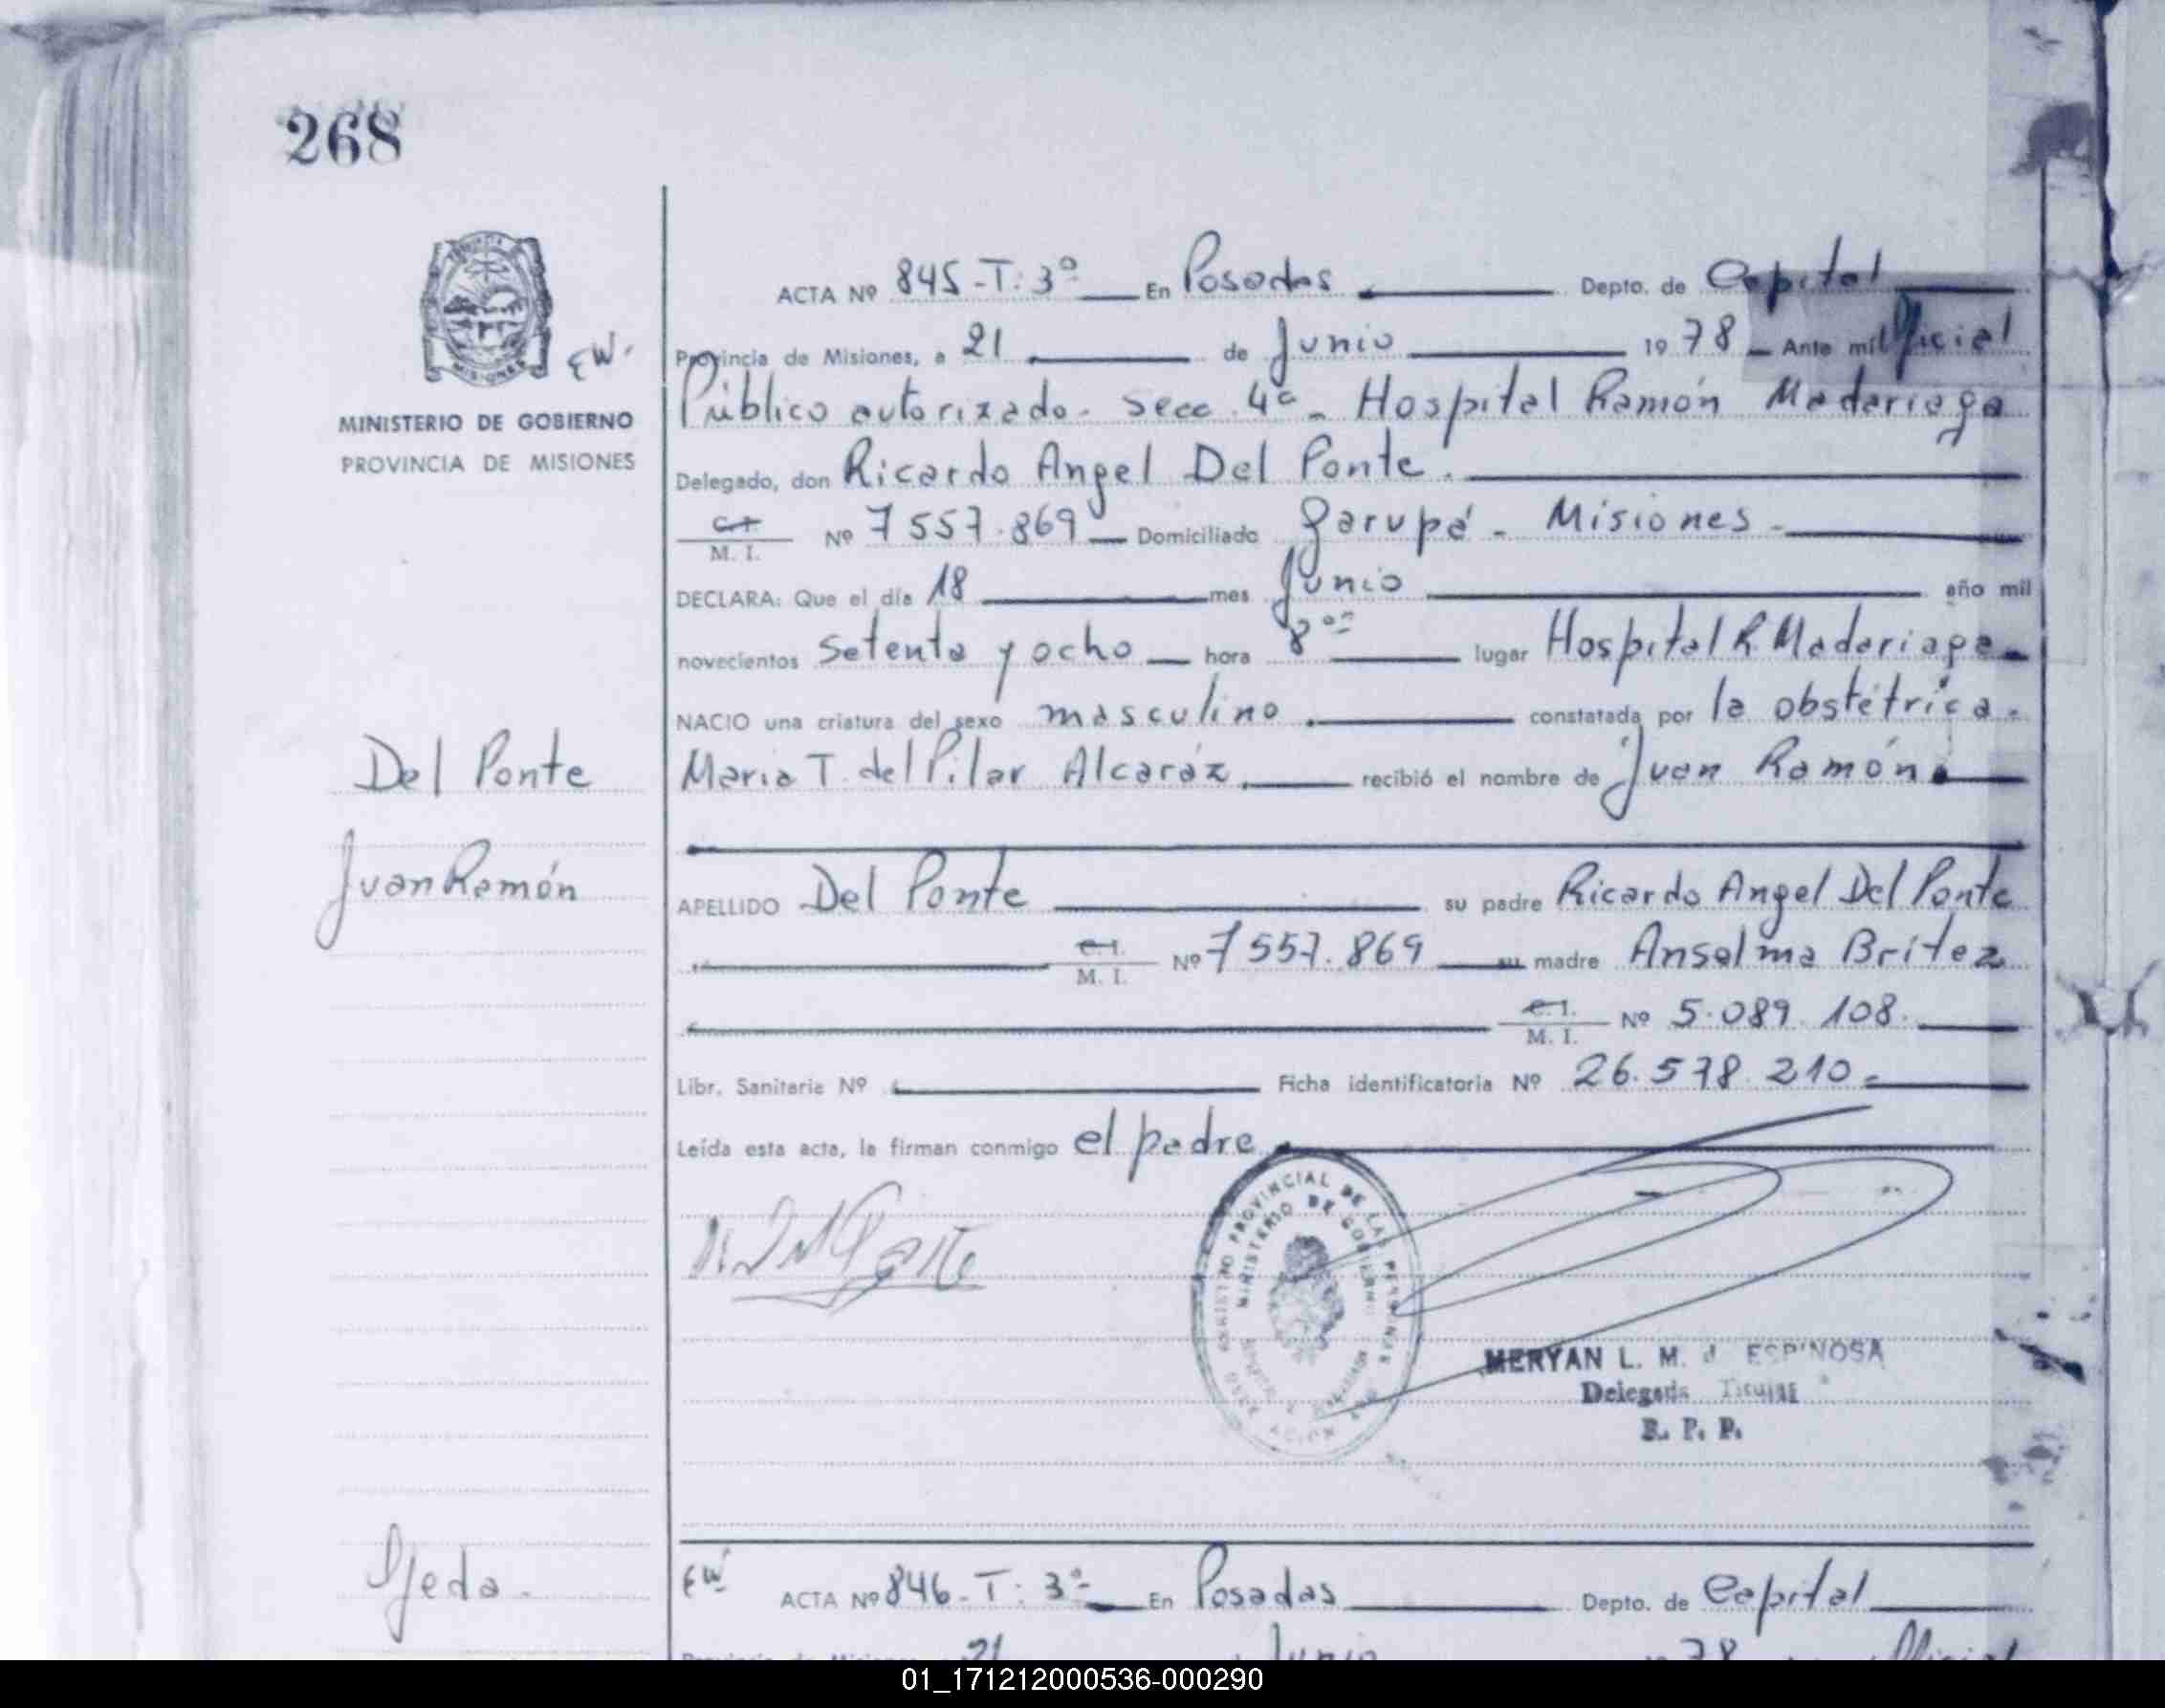 268
EW.
MINISTERIO DE GOBIERNO
PROVINCIA DE MISIONES
ACTA Nº 845-T: 3º En Posadas Depto. de Capital
Provincia de Misiones, a 21 de Junio 1978 Ante mi Oficial
Público autorizado. secc. 4ª. Hospital Ramón Madariaga
Delegado, don Ricardo Angel Del Ponte.
C.I. M. I. Nº 7557.869 Domiciliado Garupá - Misiones -
DECLARA: Que el día 18 mes Junio año mil
novecientos setenta y ocho hora 8 00 lugar Hospital R. Madariaga
NACIO una criatura del sexo masculino. constatada por la obstétrica.
María T. del Pilar Alcaráz. recibió el nombre de Juan Ramón.
Del Ponte
Juan Ramón
APELLIDO Del Ponte su padre Ricardo Angel Del Ponte
C.I. M. I. Nº 7557.869 su madre Anselma Britez
C.I. M. I. Nº 5.089.108.
Libr. Sanitaria Nº Ficha identificatoria Nº 26.578.210.
Leída esta acta, la firman conmigo el padre
REGISTRO PROVINCIAL DE LAS PERSONAS
MINISTERIO DE GOBIERNO
MERYAN L. M. d ESPINOSA
Delegada Titular
R. P. P.
Ojeda.
EW ACTA Nº 846-T: 3º En Posadas Depto. de Capital
Provincia de Misiones, 21 Junio 1978 Oficial
01_171212000536-000290